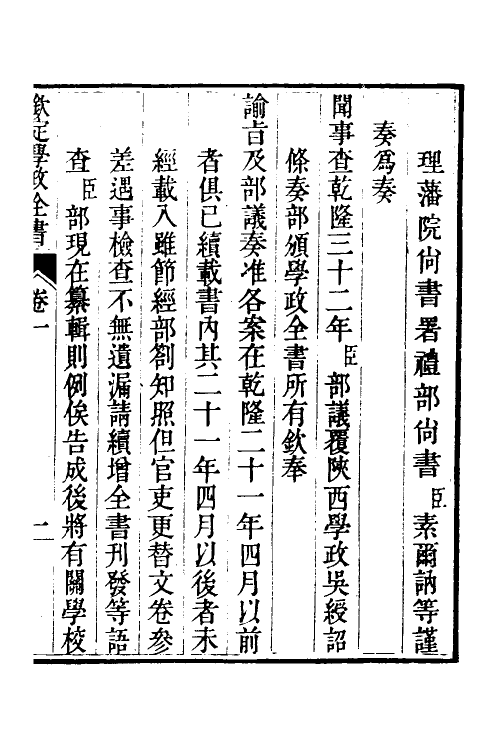 理藩院尙書署禮部尙書臣素爾訥等謹
奏爲奏
聞事查乾隆三十二年臣部議覆陝西學政吳綬詔
條奏部頒學政全書所有欽奉
諭旨及部議奏准各案在乾隆二十一年四月以前
者俱已續載書內其二十一年四月以後者未
經載入雖節經部劄知照但官吏更替文卷叅
差遇事檢查不無遺漏請續增全書刊發等語
查臣部現在纂輯則例俟告成後將有關學校
欽定學政全書 卷一 一